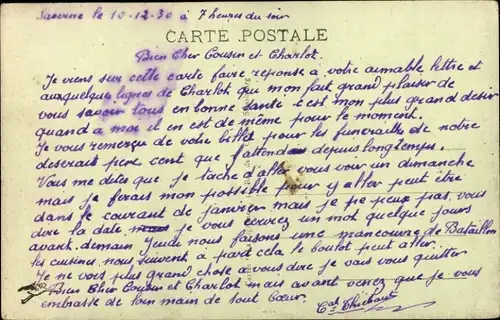 Saverne le 10-12-30 à 7 heures du soir
CARTE POSTALE
Bien Cher Cousin et Charlot.
Je viens sur cette carte faire réponse à votre aimable lettre et
auxquelque lignes de Charlot qui mon fait grand plaisir de
vous savoir tous en bonne santé c'est mon plus grand désir
quand a moi il en est de même pour le moment.
Je vous remerçu de votre billet pour les funerailles de notre
deserait pere cent que j'attend depuis longtemps.
Vous me dites que je tache d'aller vous voir un dimanche
mais je ferais mon possible pour y aller peut être
dans le courant de janvier mais je ne peux pas vous
dire la date je vous écrirez un mot quelque jours
avant. demain Jeudi nous faisons une manœuvre de Bataillon
les cuisines nous suivent à part cela le boulot peut aller.
Je ne vois plus grand chose a vous dire je vais vous quitter
Bien Cher Cousin et Charlot mais avant venez que je vous
embrasse de loin main de tout cœur.